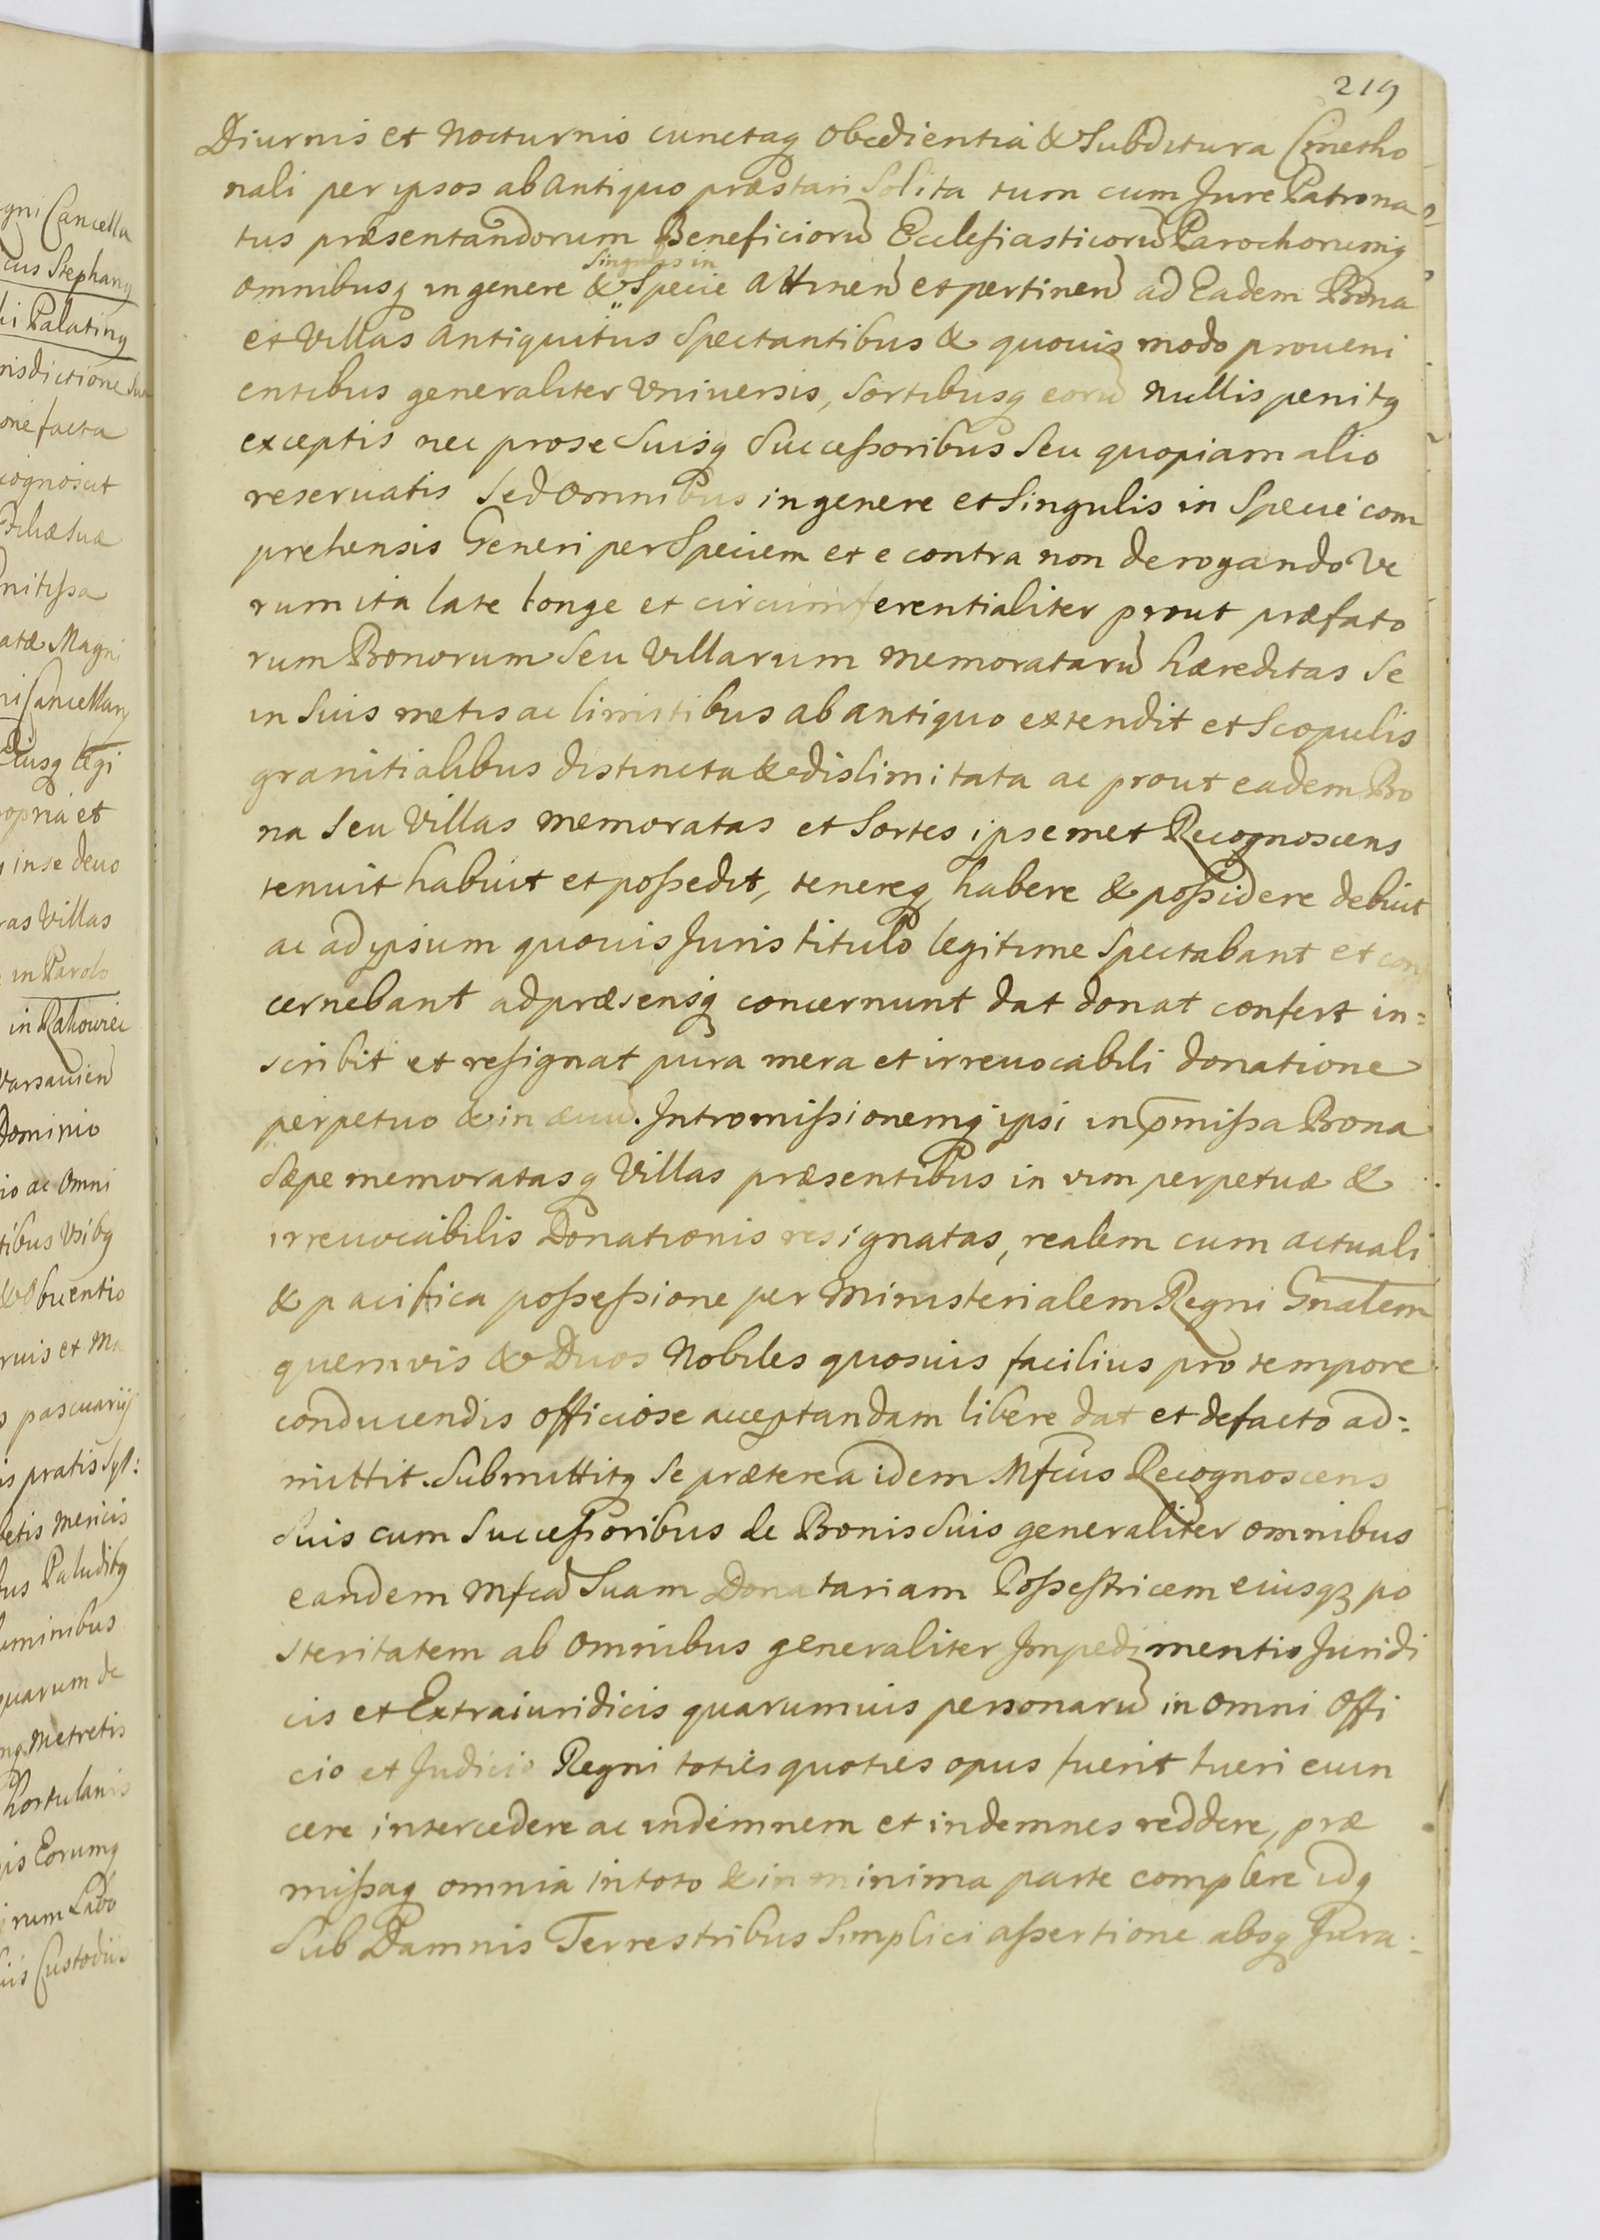 219
Diurnis et Nocturnis cunctaq obedientia & Subditura Cmetho
nali per ipsos ab antiquo præstari Solita tum cum Jure Patrona
tus præsentandorum Beneficiorū Ecclesiasticorū Parochorumq
Singulis in
omnibusq in genere & Specie attinen et pertinen ad Eadem Bona
et Villas antiquitus Spectantibus & quouis modo proueni
entibus generaliter Vniuersis, Sortibusq eorū nullis penitq
exceptis nec pro se Suisq Successoribus Seu quopiam alio
reseruatis Sed omnibus in genere et Singulis in Specie com
prehensis Generi per Speciem et e contra non derogando Ve
rum ita late longe et circumferentialiter prout præfato
rum Bonorum Seu Villarum memoratarū hæreditas Se
in Suis metis ac limitibus ab antiquo extendit et Scopulis
granitialibus distincta & dislimitata ac prout eadem Bo
na Seu Villas memoratas et Sortes ipsemet Recognoscens
tenuit habuit et possedit, tenereq habere & possidere debuit
ac ad ipsum quouis Juris titulo legitime Spectabant et con
cernebant ad præsensq concernunt dat donat confert in=
scribit et resignat pura mera et irreuocabili donatione
perpetuo & in æuū. Intromissionemq ipsi in pmissa Bona
Sæpe memoratasq Villas præsentibus in vim perpetuæ &
irreuocabilis Donationis resignatas, realem cum actuali
& pacifica possessione per Ministerialem Regni Gnalem
quemvis & Duos Nobiles quosuis facilius pro tempore
conducendis officiose acceptandam libere dat et de facto ad=
mittit. Submittitq Se præterea idem Mfcus Recognoscens
Suis cum Successoribus de Bonis Suis generaliter omnibus
eandem Mfcā Suam Donatariam Possestricem eiusqꝫ po
steritatem ab omnibus generaliter Impedimentis Juridi
cis et Extraiuridicis quarumuis personarū in omni Offi
cio et Judicio Regni toties quoties opus fuerit tueri euin
cere intercedere ac indemnem et indemnes reddere, præ
missaq omnia in toto & in minima parte complere idq
Sub Damnis Terrestribus Simplici assertione absq Jura=